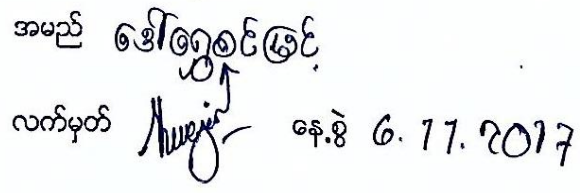 အမည် ဒေါ်ရွှေစင်မြင့်
လက်မှတ် နေ့စွဲ 6.11.2017